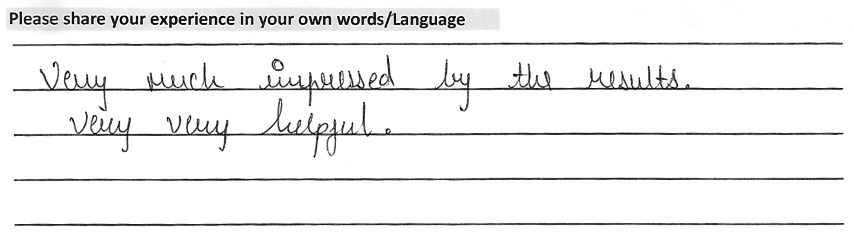 Please share your experience in your own words/Language
Very much impressed by the results.
very very helpful.